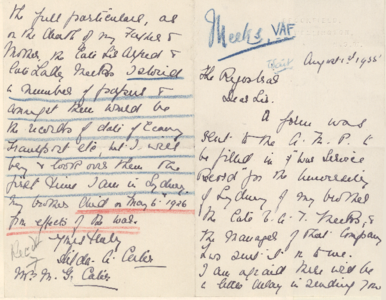 Meeks, VAF
August 1st 1935
The Registrar
Dear Sir.
A form was
sent to the A. M. P. to
be filled in of War Service
record for the University
of Sydney of my brother
the late V. A. F. Meeks, &
the Manager of that Company
has sent it on to me.
I am afraid there will be
a little delay in sending you
the full particulars, as
on the death of my Father &
Mother, the late Sir Alfred &
late Lady Meeks I stored
a number of papers &
amongst them would be
the records of date of leaving
Transport etc. but I will
try & look over them the
first time I am in Sydney.
My brother died on May 6. 1926
from effects of the war.
Yours truly
Hilda A. Cater
Mrs M. G. Cater